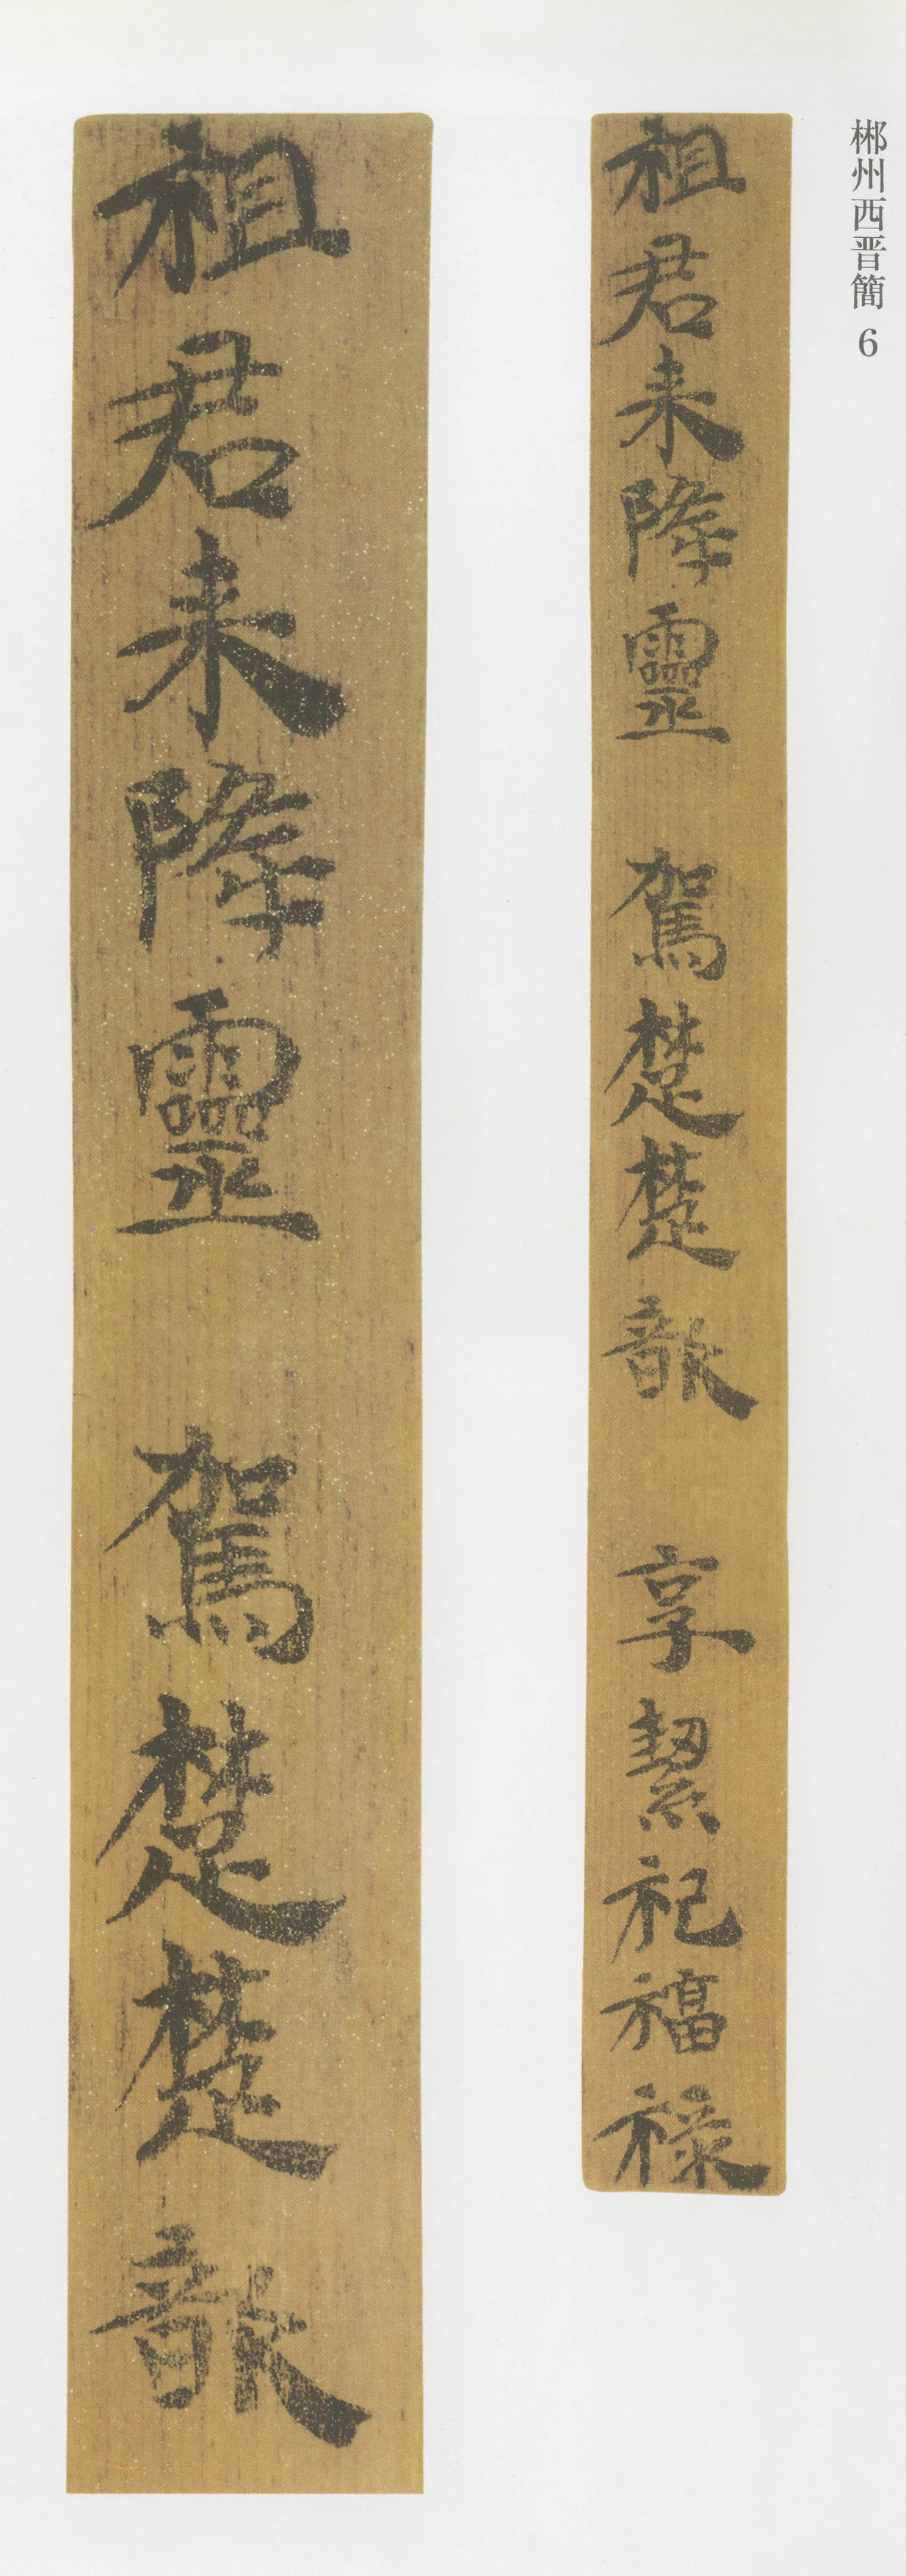 郴州西晋簡 6
祖君来降靈 駕楚楚歆 享絜祀福祿
祖君来降靈 駕楚楚歆